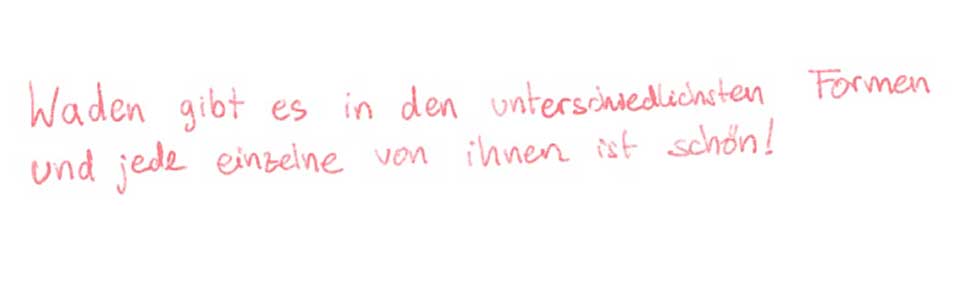 Waden gibt es in den unterschiedlichsten Formen
und jede einzelne von ihnen ist schön!